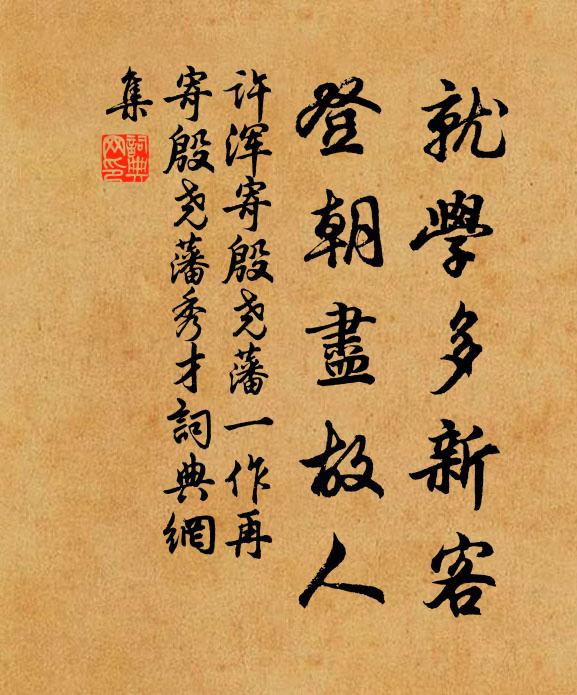 就學多新客
登朝盡故人
许浑寄殷尧藩一作再
寄殷尧藩秀才詞典網
集
詞典網印